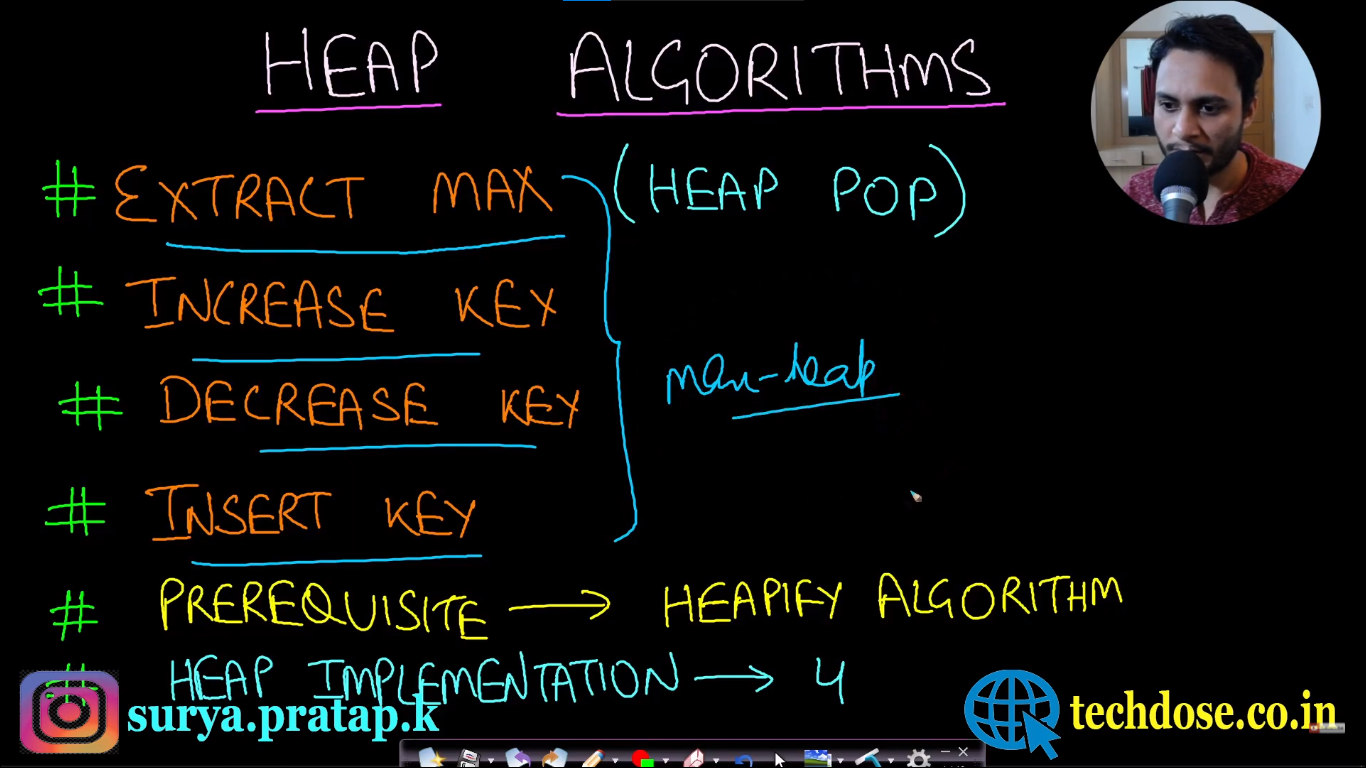 HEAP ALGORITHMS
# EXTRACT MAX (HEAP POP)
# INCREASE KEY
max-heap
# DECREASE KEY
# INSERT KEY
# PREREQUISITE → HEAPIFY ALGORITHM
# HEAP IMPLEMENTATION → 4
surya.pratap.k
techdose.co.in